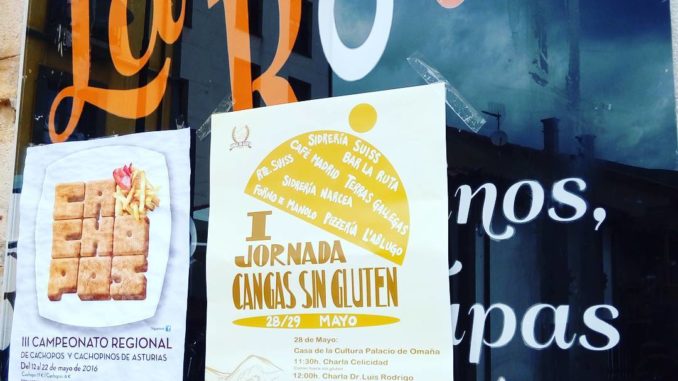 La
Ro
CA
CHO
POS
III CAMPEONATO REGIONAL
DE CACHOPOS Y CACHOPINOS DE ASTURIAS
Del 12 al 22 de mayo de 2016
SIDRERÍA SUISS
RTE. SUISS
BAR LA RUTA
CAFÉ MADRID
TERRAS GALLEGAS
SIDRERÍA NARCEA
FORNO DE MANOLO
PIZZERÍA L'ABLUGO
I
JORNADA
CANGAS SIN GLUTEN
28/29 MAYO
28 de Mayo:
Casa de la Cultura Palacio de Omaña
11:30h. Charla Celicidad
12:00h. Charla Dr. Luis Rodrigo
nos,
apas